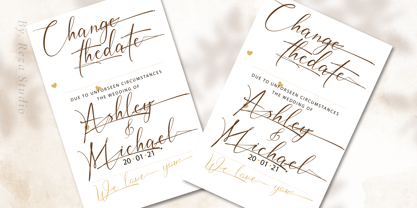 By Rezastudio
Change
thedate
DUE TO UNFORSEEN CIRCUMSTANCES
THE WEDDING OF
Ashley
&
Michael
20·01·21
We love you
Change
thedate
DUE TO UNFORSEEN CIRCUMSTANCES
THE WEDDING OF
Ashley
&
Michael
20·01·21
We love you